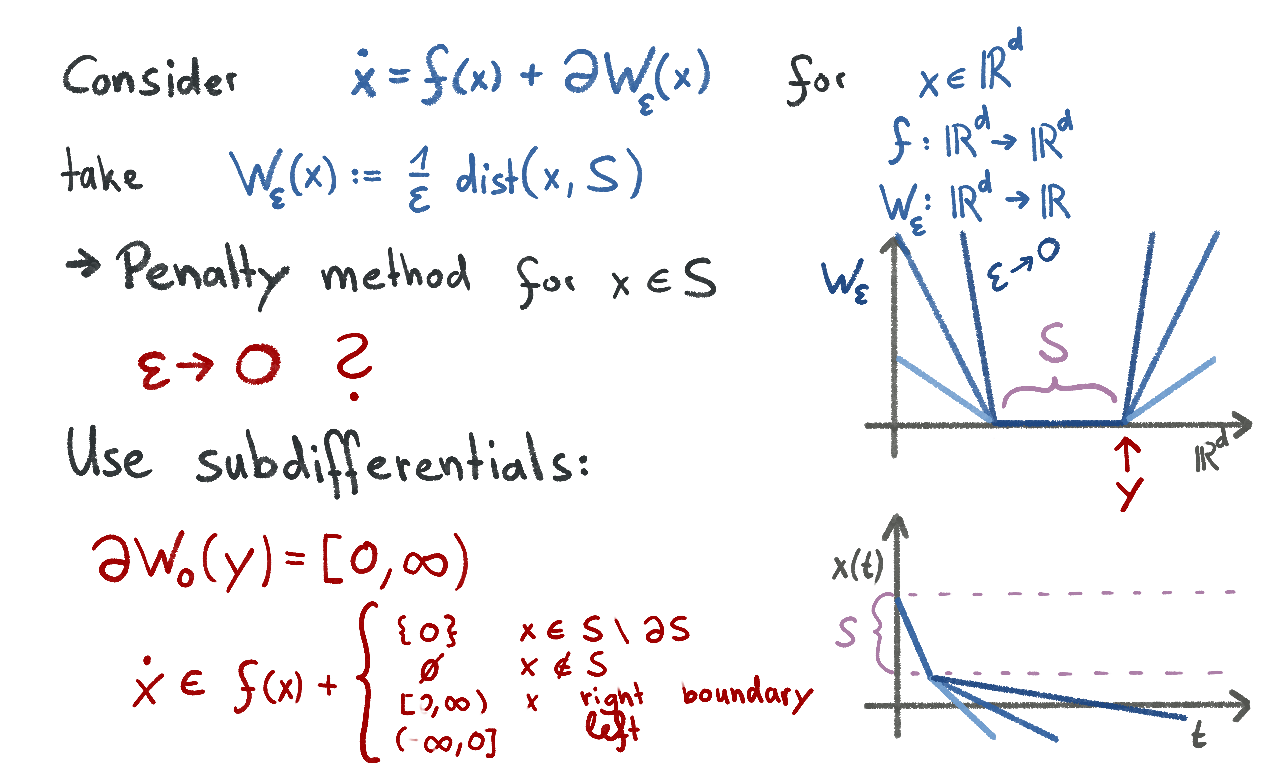 Consider ẋ = f(x) + ∂W_ε(x) for x ∈ ℝ^d
f : ℝ^d → ℝ^d
take W_ε(x) := 1/ε dist(x, S)
W_ε : ℝ^d → ℝ
→ Penalty method for x ∈ S
ε → 0 ?
W_ε
ε → 0
S
ℝ^d
y
Use subdifferentials:
∂W_0(y) = [0, ∞)
ẋ ∈ f(x) + {
{0} x ∈ S \ ∂S
∅ x ∉ S
[0, ∞) x right boundary
(-∞, 0] left
x(t)
S
t